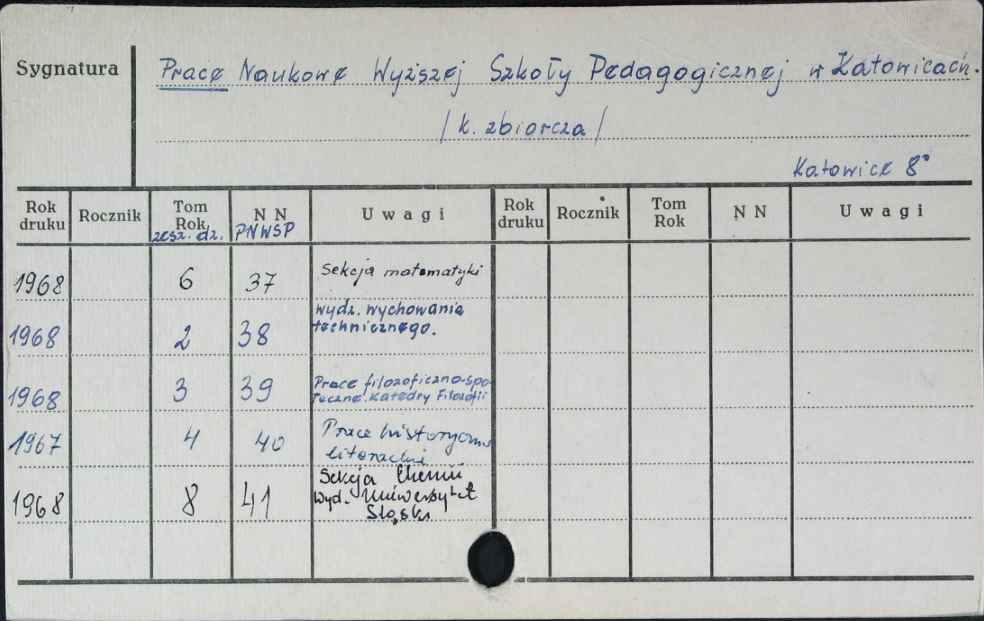 Sygnatura
Prace Naukowe Wyższej Szkoły Pedagogicznej w Katowicach.
/ k. zbiorcza /
Katowice 8°
Rok druku Rocznik Tom Rok zesz. dz. N N PNWSP Uwagi Rok druku Rocznik Tom Rok N N Uwagi
1968 6 37 Sekcja matematyki
1968 2 38 wydz. wychowania
technicznego.
1968 3 39 Prace filozoficzno-spo-
łeczne. Katedry Filozofii
1967 4 40 Prace historyczno
literackie
1968 8 41 Sekcja Chemii
Wyd. Uniwersytet
Śląski